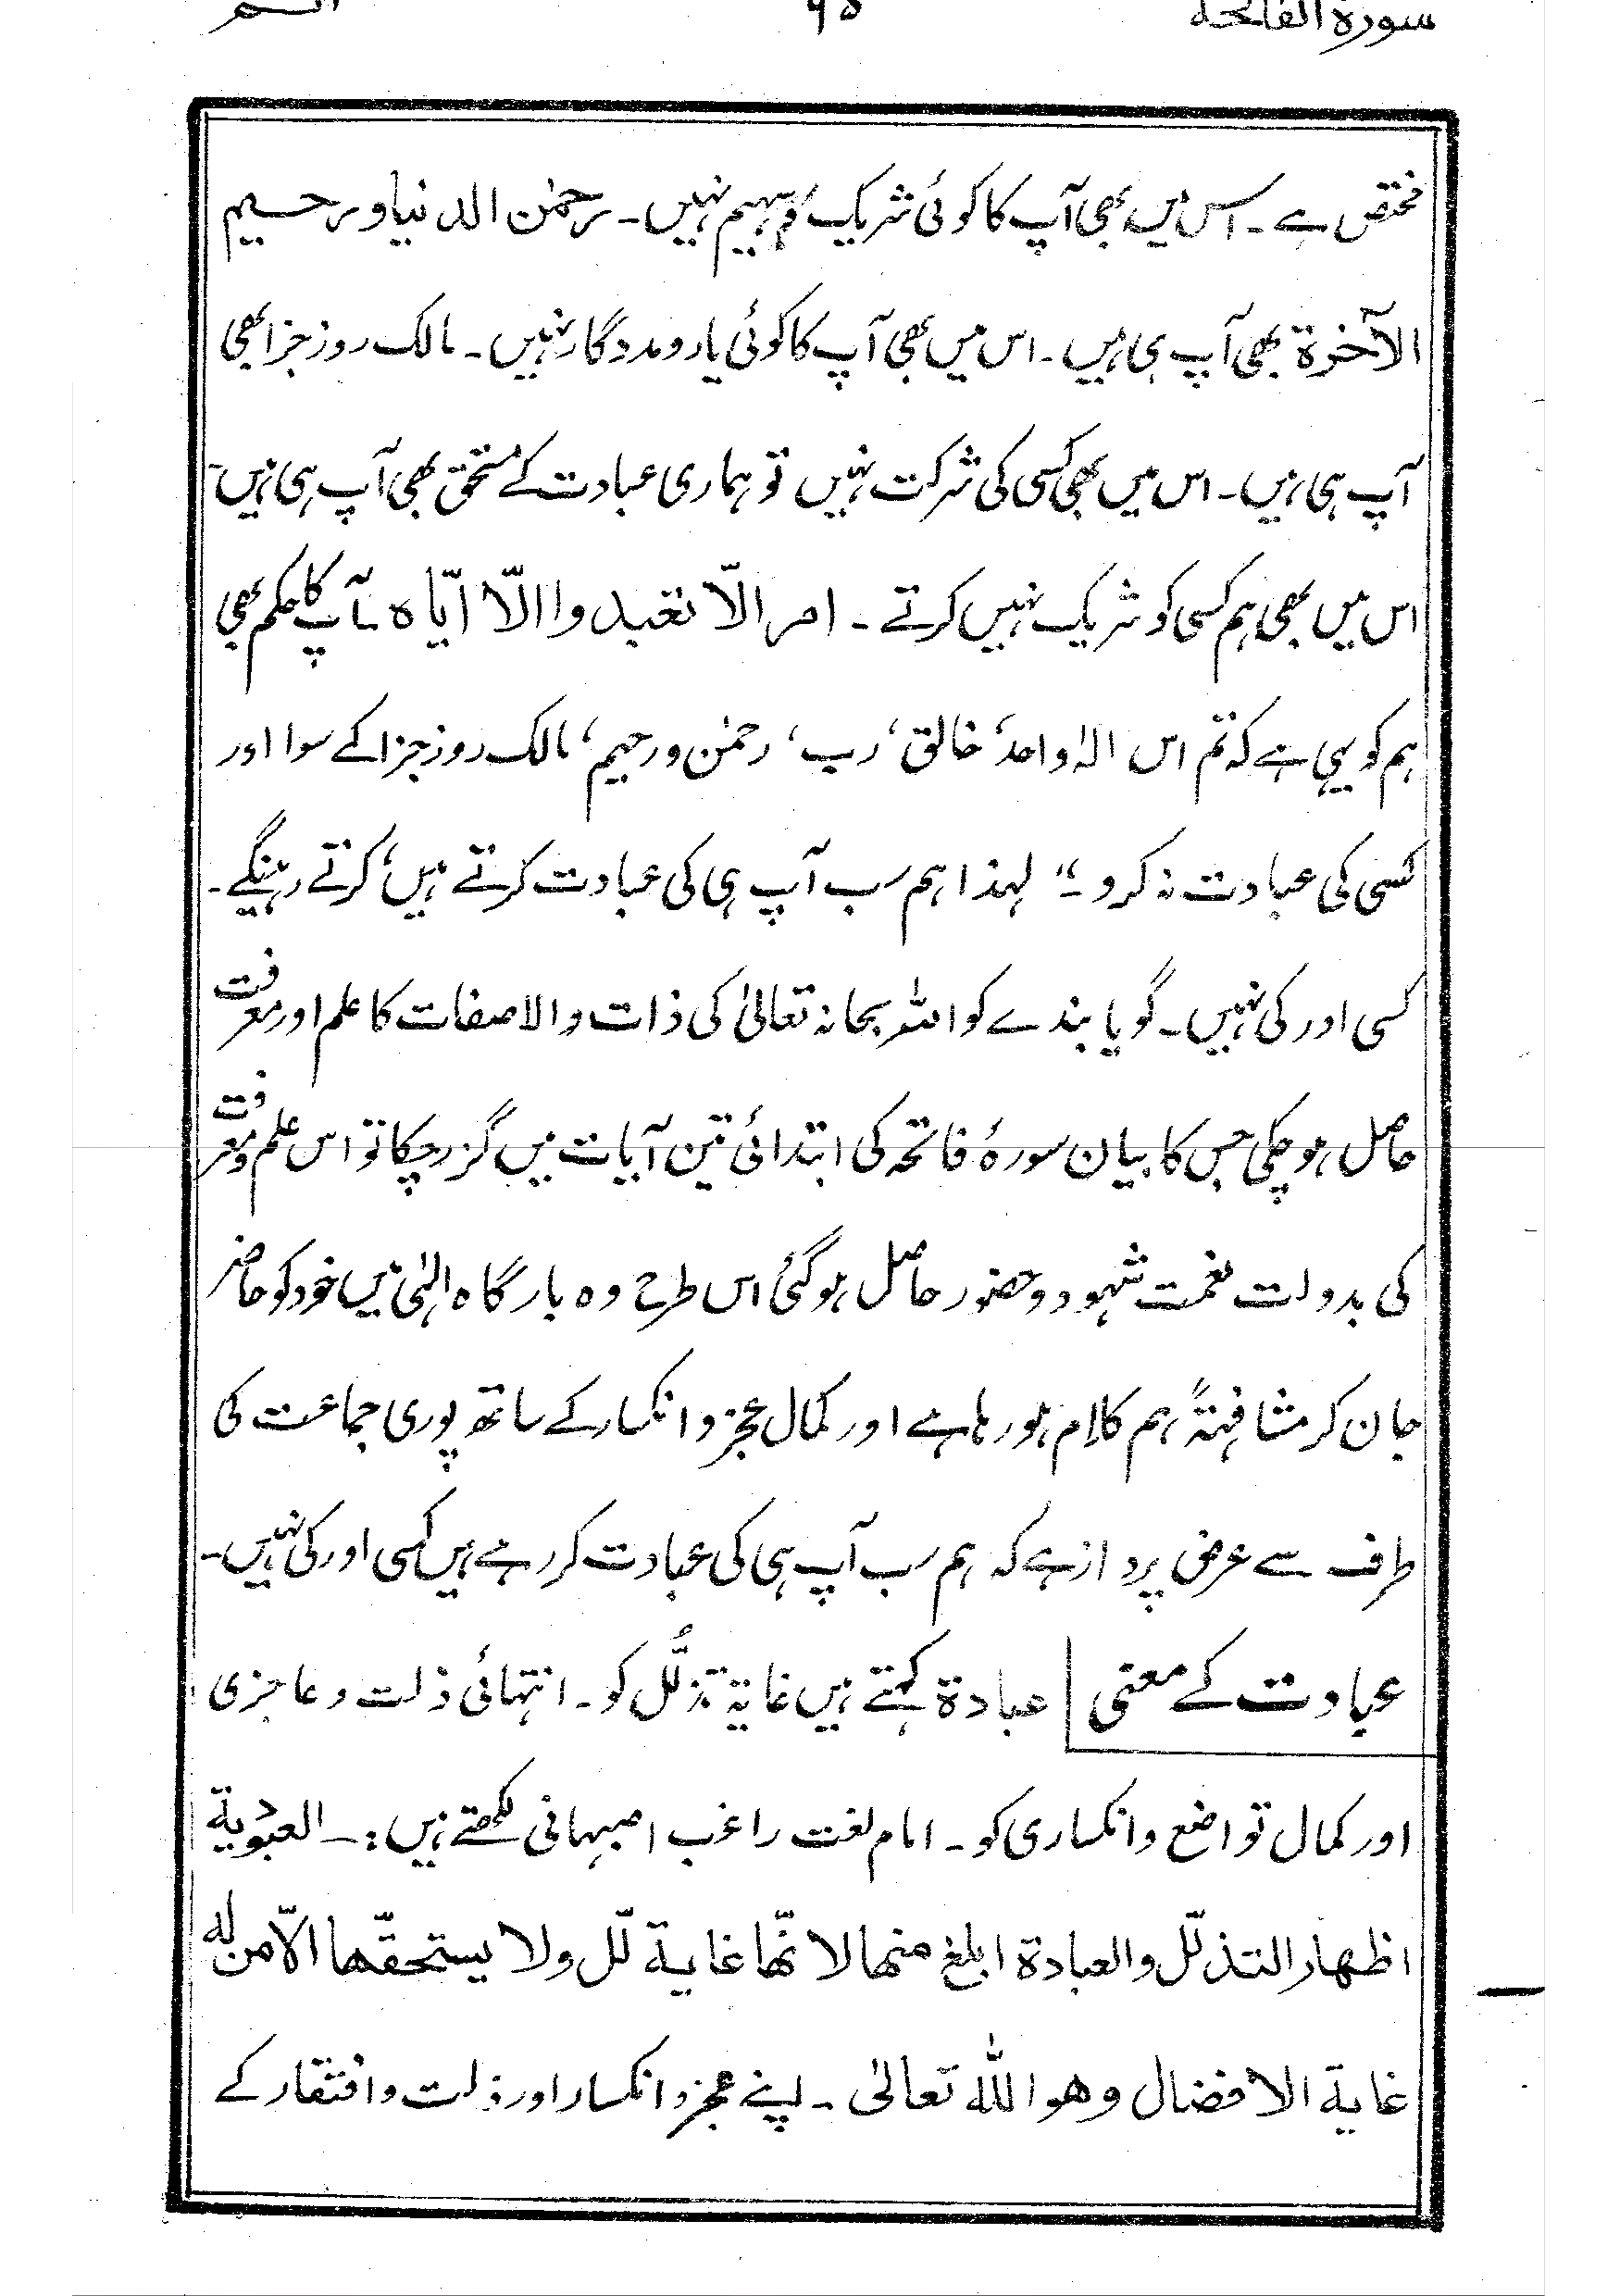 سورۃ الفاتحہ ۶۵ السم
مختص ہے۔ اس میں بھی آپ کا کوئی شریک و سہیم نہیں۔ رحمٰن الدنیا و رحیم
الآخرۃ بھی آپ ہی ہیں۔ اس میں بھی آپ کا کوئی یار و مددگار نہیں۔ مالک روز جزا بھی
آپ ہی ہیں۔ اس میں بھی کسی کی شرکت نہیں تو ہماری عبادت کے مستحق بھی آپ ہی ہیں۔
اس میں بھی ہم کسی کو شریک نہیں کرتے۔ امر الّا تعبدوا الّا ایّاہ۔ آپ کا حکم بھی
ہم کو یہی ہے کہ تم اس الٰہ واحد، خالق، رب، رحمٰن و رحیم، مالک روز جزا کے سوا اور
کسی کی عبادت نہ کرو۔“ لہذا ہم سب آپ ہی کی عبادت کرتے ہیں، کرتے رہینگے۔
کسی اور کی نہیں۔ گویا بندے کو اللہ سبحانہ تعالیٰ کی ذات والا صفات کا علم اور معرفت
حاصل ہو چکی جس کا بیان سورۂ فاتحہ کی ابتدائی تین آیات میں گزر چکا تو اس علم و معرفت
کی بدولت نعمت شہود و حضور حاصل ہو گئی اس طرح وہ بارگاہ الٰہی میں خود کو حاضر
جان کر مشافہۃً ہم کلام ہو رہا ہے اور کمال عجز و انکسار کے ساتھ پوری جماعت کی
طرف سے عرض پرداز ہے کہ ہم سب آپ ہی کی عبادت کر رہے ہیں کسی اور کی نہیں۔
عبادت کے معنی | عبادۃ کہتے ہیں غایۃ تذلُّل کو۔ انتہائی ذلت و عاجزی
اور کمال تواضع و انکساری کو۔ امام لغت راغب اصبہانی لکھتے ہیں:۔ العبُودیۃ
اظہار التذلّل والعبادۃ ابلغ منہا لانّہا غایۃ لّل ولا یستحقّہا الّا من لہ
غایۃ الافضال وھو اللہ تعالیٰ۔ اپنے عجز و انکسار اور ذلت و افتقار کے